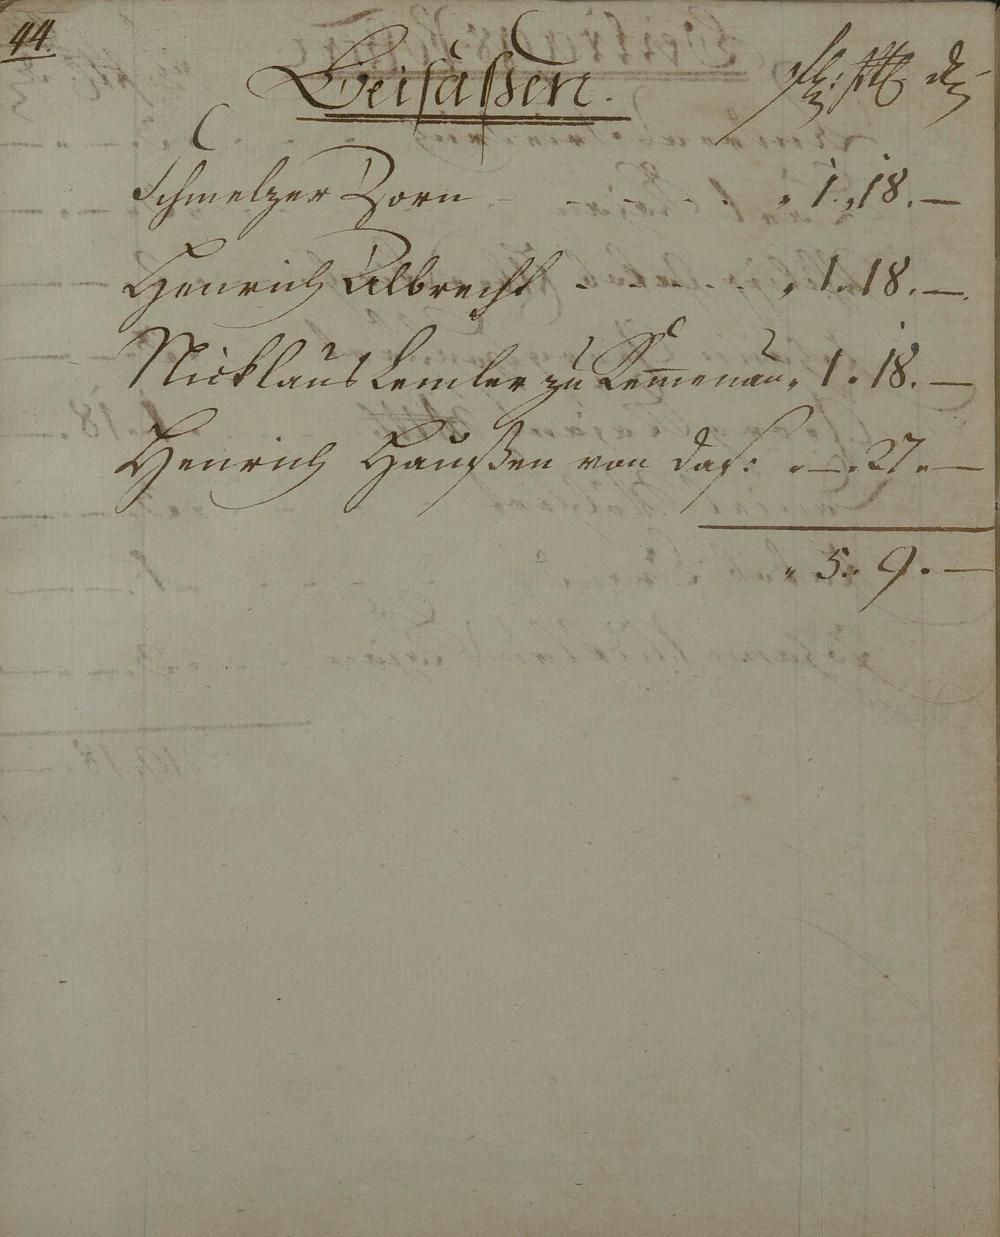 44.
Beisassen.
fl: alb d
Schmelzer Zorn - - - - „ 1. „ 18. —
Henrich Albrecht - - - - - „ 1. 18. —.
Nicklaus Lemler zu Lemenau „ 1. 18. —
Henrich Haußen von das: „ — . 27. —
„ 5. 9. —